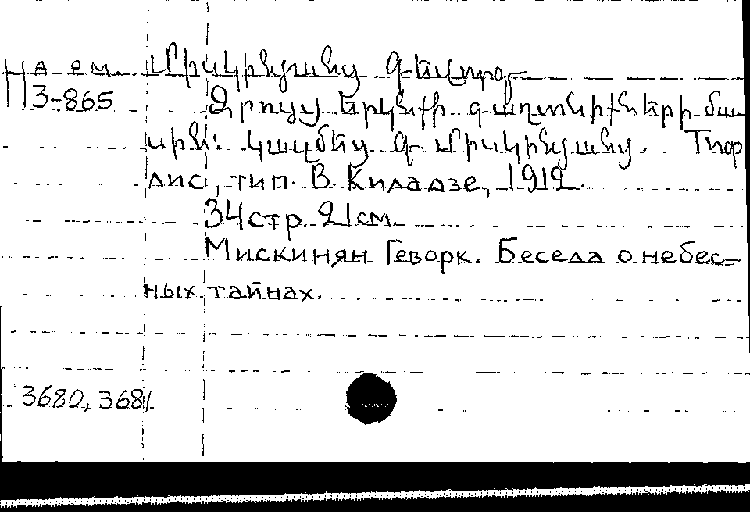 На ем. Միսկինյանց Գևորգ
П3-865 Զրույց երկնքի գաղտնիքների մա-
սին: Կազմեց Գ. Միսկինյանց. Тиф
лис, тип. В. Киладзе, 1912.
34 стр. 21 см.
Мискинян Геворк. Беседа о небес-
ных тайнах.
3680, 3681